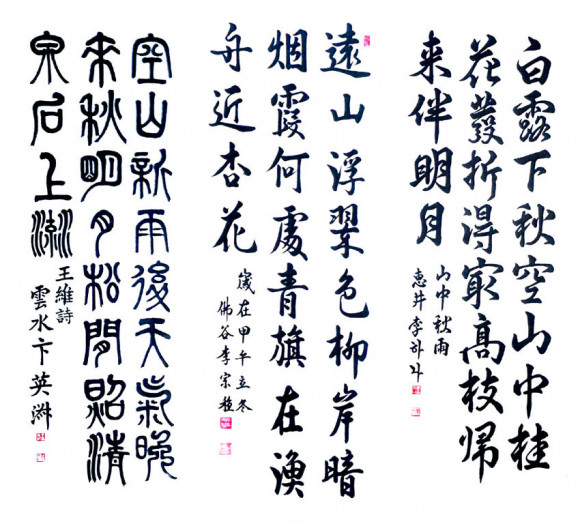 白露下秋空山中桂
花發折得最高枝歸
来伴明月
山中秋雨
惠井李
遠山浮翠色柳岸暗
烟霞何處青旗在漁
舟近杏花
歲在甲午立冬
佛谷李宗
空山新雨後天氣晚
來秋明月松間照清
泉石上流
王維詩
雲水卞英